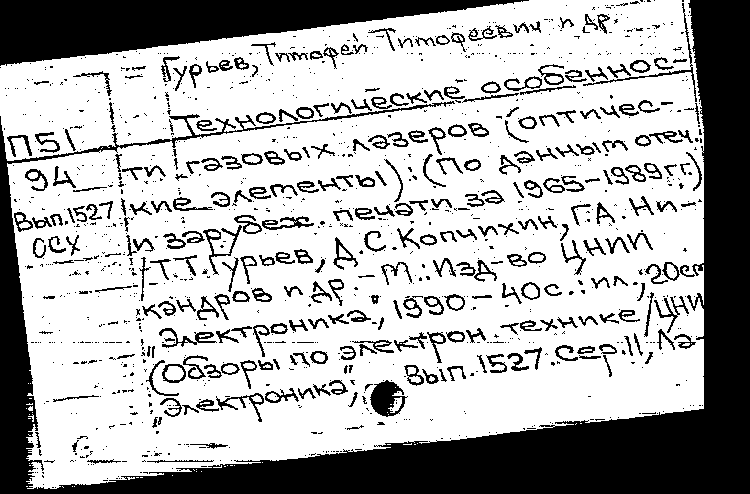 Гурьев, Тимофей Тимофеевич и др.
Технологические особеннос-
П51
ти газовых лазеров (оптичес-
94
кие элементы): (По данным отеч.
Вып.1527
и зарубеж. печати за 1965-1989гг.)
ОСХ
Т.Т.Гурьев, Д.С.Копчихин, Г.А. Ни-
кандров и др. - М.: Изд-во ЦНИИ
"Электроника", 1990. - 40с.: ил.; 20см
(Обзоры по электрон. технике/ЦНИИ
"Электроника"; Вып.1527. Сер.11, Ла-